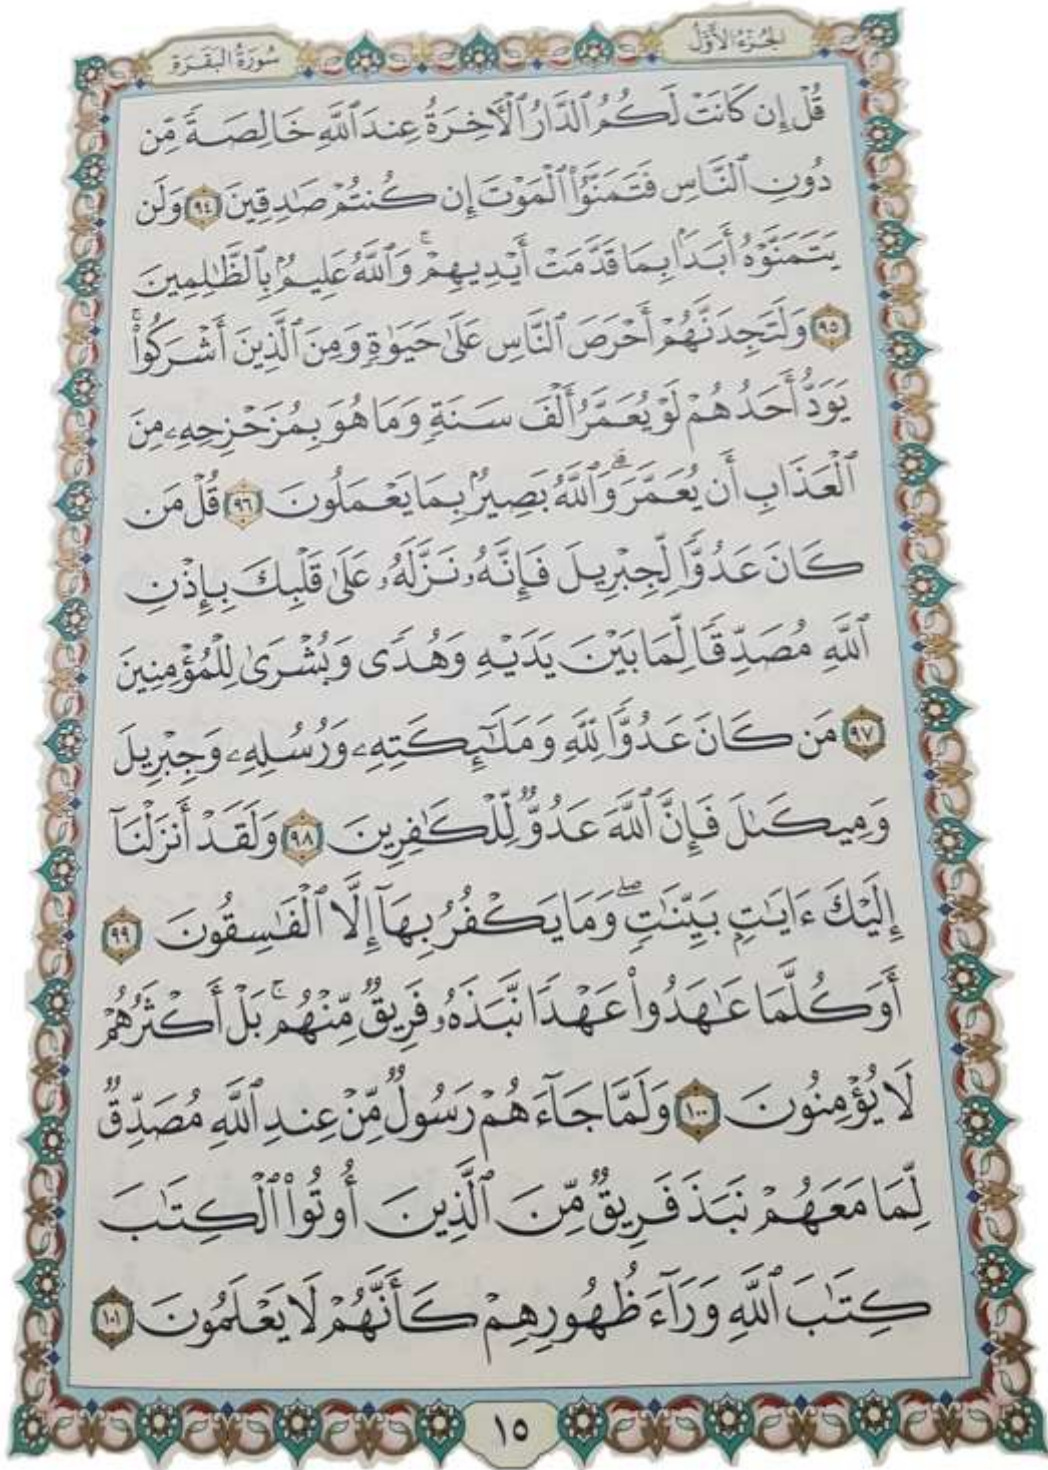 الجُزْءُ الأَوَّلُ
سُورَةُ البَقَرَةِ
قُلْ إِن كَانَتْ لَكُمُ ٱلدَّارُ ٱلْأٓخِرَةُ عِندَ ٱللَّهِ خَالِصَةً مِّن
دُونِ ٱلنَّاسِ فَتَمَنَّوُاْ ٱلْمَوْتَ إِن كُنتُمْ صَٰدِقِينَ ٩٤ وَلَن
يَتَمَنَّوْهُ أَبَدًۢا بِمَا قَدَّمَتْ أَيْدِيهِمْۚ وَٱللَّهُ عَلِيمٌۢ بِٱلظَّٰلِمِينَ
٩٥ وَلَتَجِدَنَّهُمْ أَحْرَصَ ٱلنَّاسِ عَلَىٰ حَيَوٰةٍ وَمِنَ ٱلَّذِينَ أَشْرَكُواْۚ
يَوَدُّ أَحَدُهُمْ لَوْ يُعَمَّرُ أَلْفَ سَنَةٍ وَمَا هُوَ بِمُزَحْزِحِهِۦ مِنَ
ٱلْعَذَابِ أَن يُعَمَّرَۗ وَٱللَّهُ بَصِيرٌۢ بِمَا يَعْمَلُونَ ٩٦ قُلْ مَن
كَانَ عَدُوًّا لِّجِبْرِيلَ فَإِنَّهُۥ نَزَّلَهُۥ عَلَىٰ قَلْبِكَ بِإِذْنِ
ٱللَّهِ مُصَدِّقًا لِّمَا بَيْنَ يَدَيْهِ وَهُدًى وَبُشْرَىٰ لِلْمُؤْمِنِينَ
٩٧ مَن كَانَ عَدُوًّا لِّلَّهِ وَمَلَٰٓئِكَتِهِۦ وَرُسُلِهِۦ وَجِبْرِيلَ
وَمِيكَىٰلَ فَإِنَّ ٱللَّهَ عَدُوٌّ لِّلْكَٰفِرِينَ ٩٨ وَلَقَدْ أَنزَلْنَآ
إِلَيْكَ ءَايَٰتٍۭ بَيِّنَٰتٍۖ وَمَا يَكْفُرُ بِهَآ إِلَّا ٱلْفَٰسِقُونَ ٩٩
أَوَكُلَّمَا عَٰهَدُواْ عَهْدًا نَّبَذَهُۥ فَرِيقٌ مِّنْهُمۚ بَلْ أَكْثَرُهُمْ
لَا يُؤْمِنُونَ ١٠٠ وَلَمَّا جَآءَهُمْ رَسُولٌ مِّنْ عِندِ ٱللَّهِ مُصَدِّقٌ
لِّمَا مَعَهُمْ نَبَذَ فَرِيقٌ مِّنَ ٱلَّذِينَ أُوتُواْ ٱلْكِتَٰبَ
كِتَٰبَ ٱللَّهِ وَرَآءَ ظُهُورِهِمْ كَأَنَّهُمْ لَا يَعْلَمُونَ ١٠١
١٥